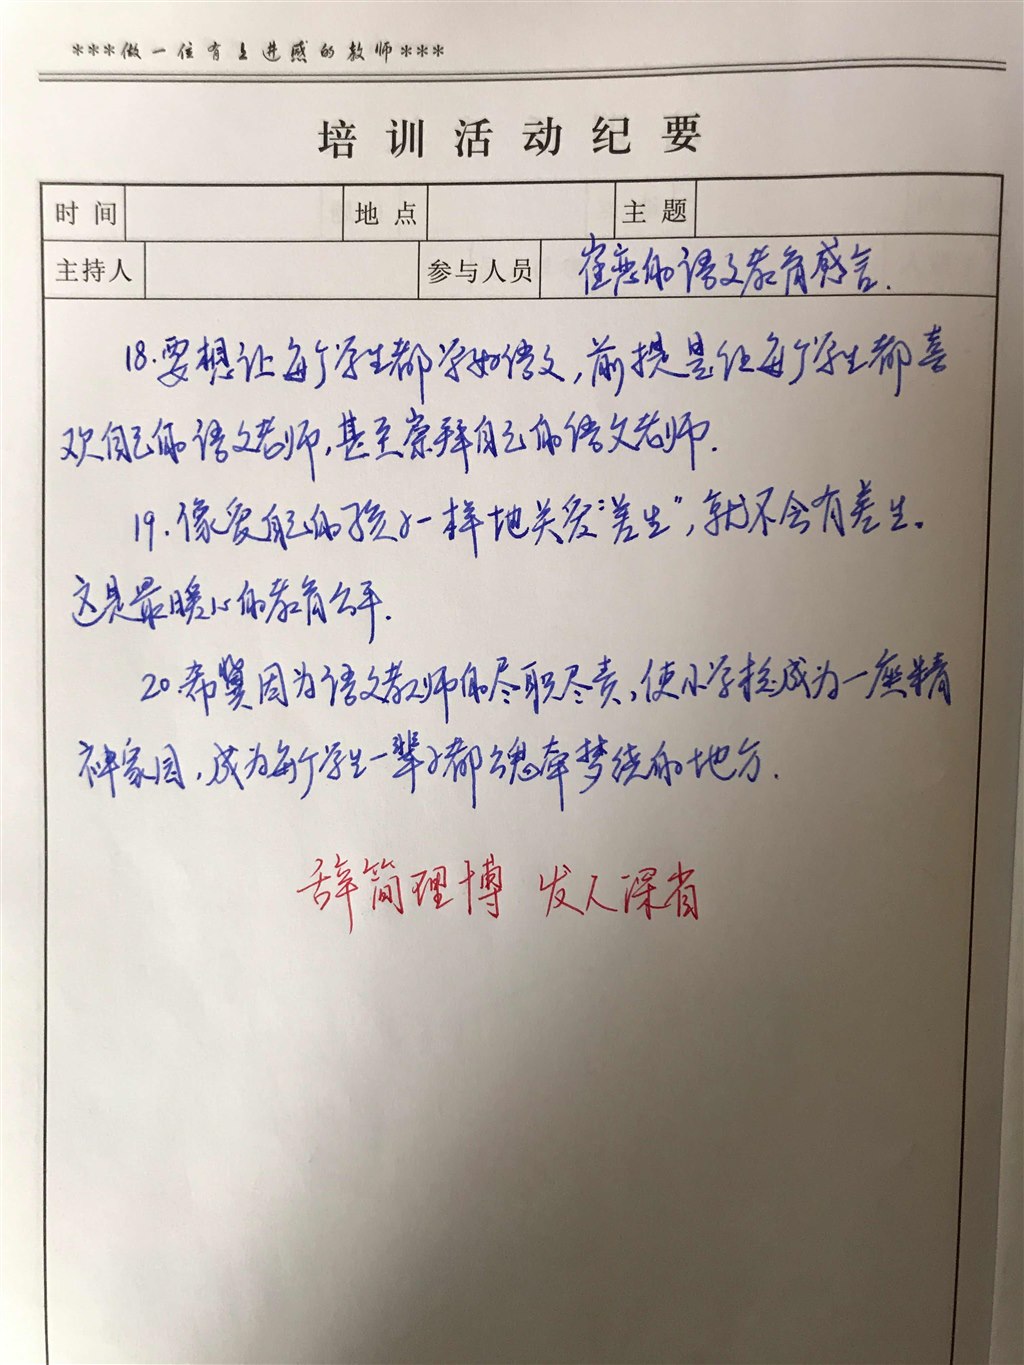 ***做一位有上进感的教师***
培训活动纪要
时间 地点 主题
主持人 参与人员 崔峦的语文教育感言.
18.要想让每个学生都学好语文,前提是让每个学生都喜
欢自己的语文老师,甚至崇拜自己的语文老师.
19.像爱自己的孩子一样地关爱“差生”,就不会有差生。
这是最暖心的教育公平.
20.希冀因为语文教师的尽职尽责,使小学校成为一座精
神家园,成为每个学生一辈子都魂牵梦绕的地方.
辞简理博 发人深省